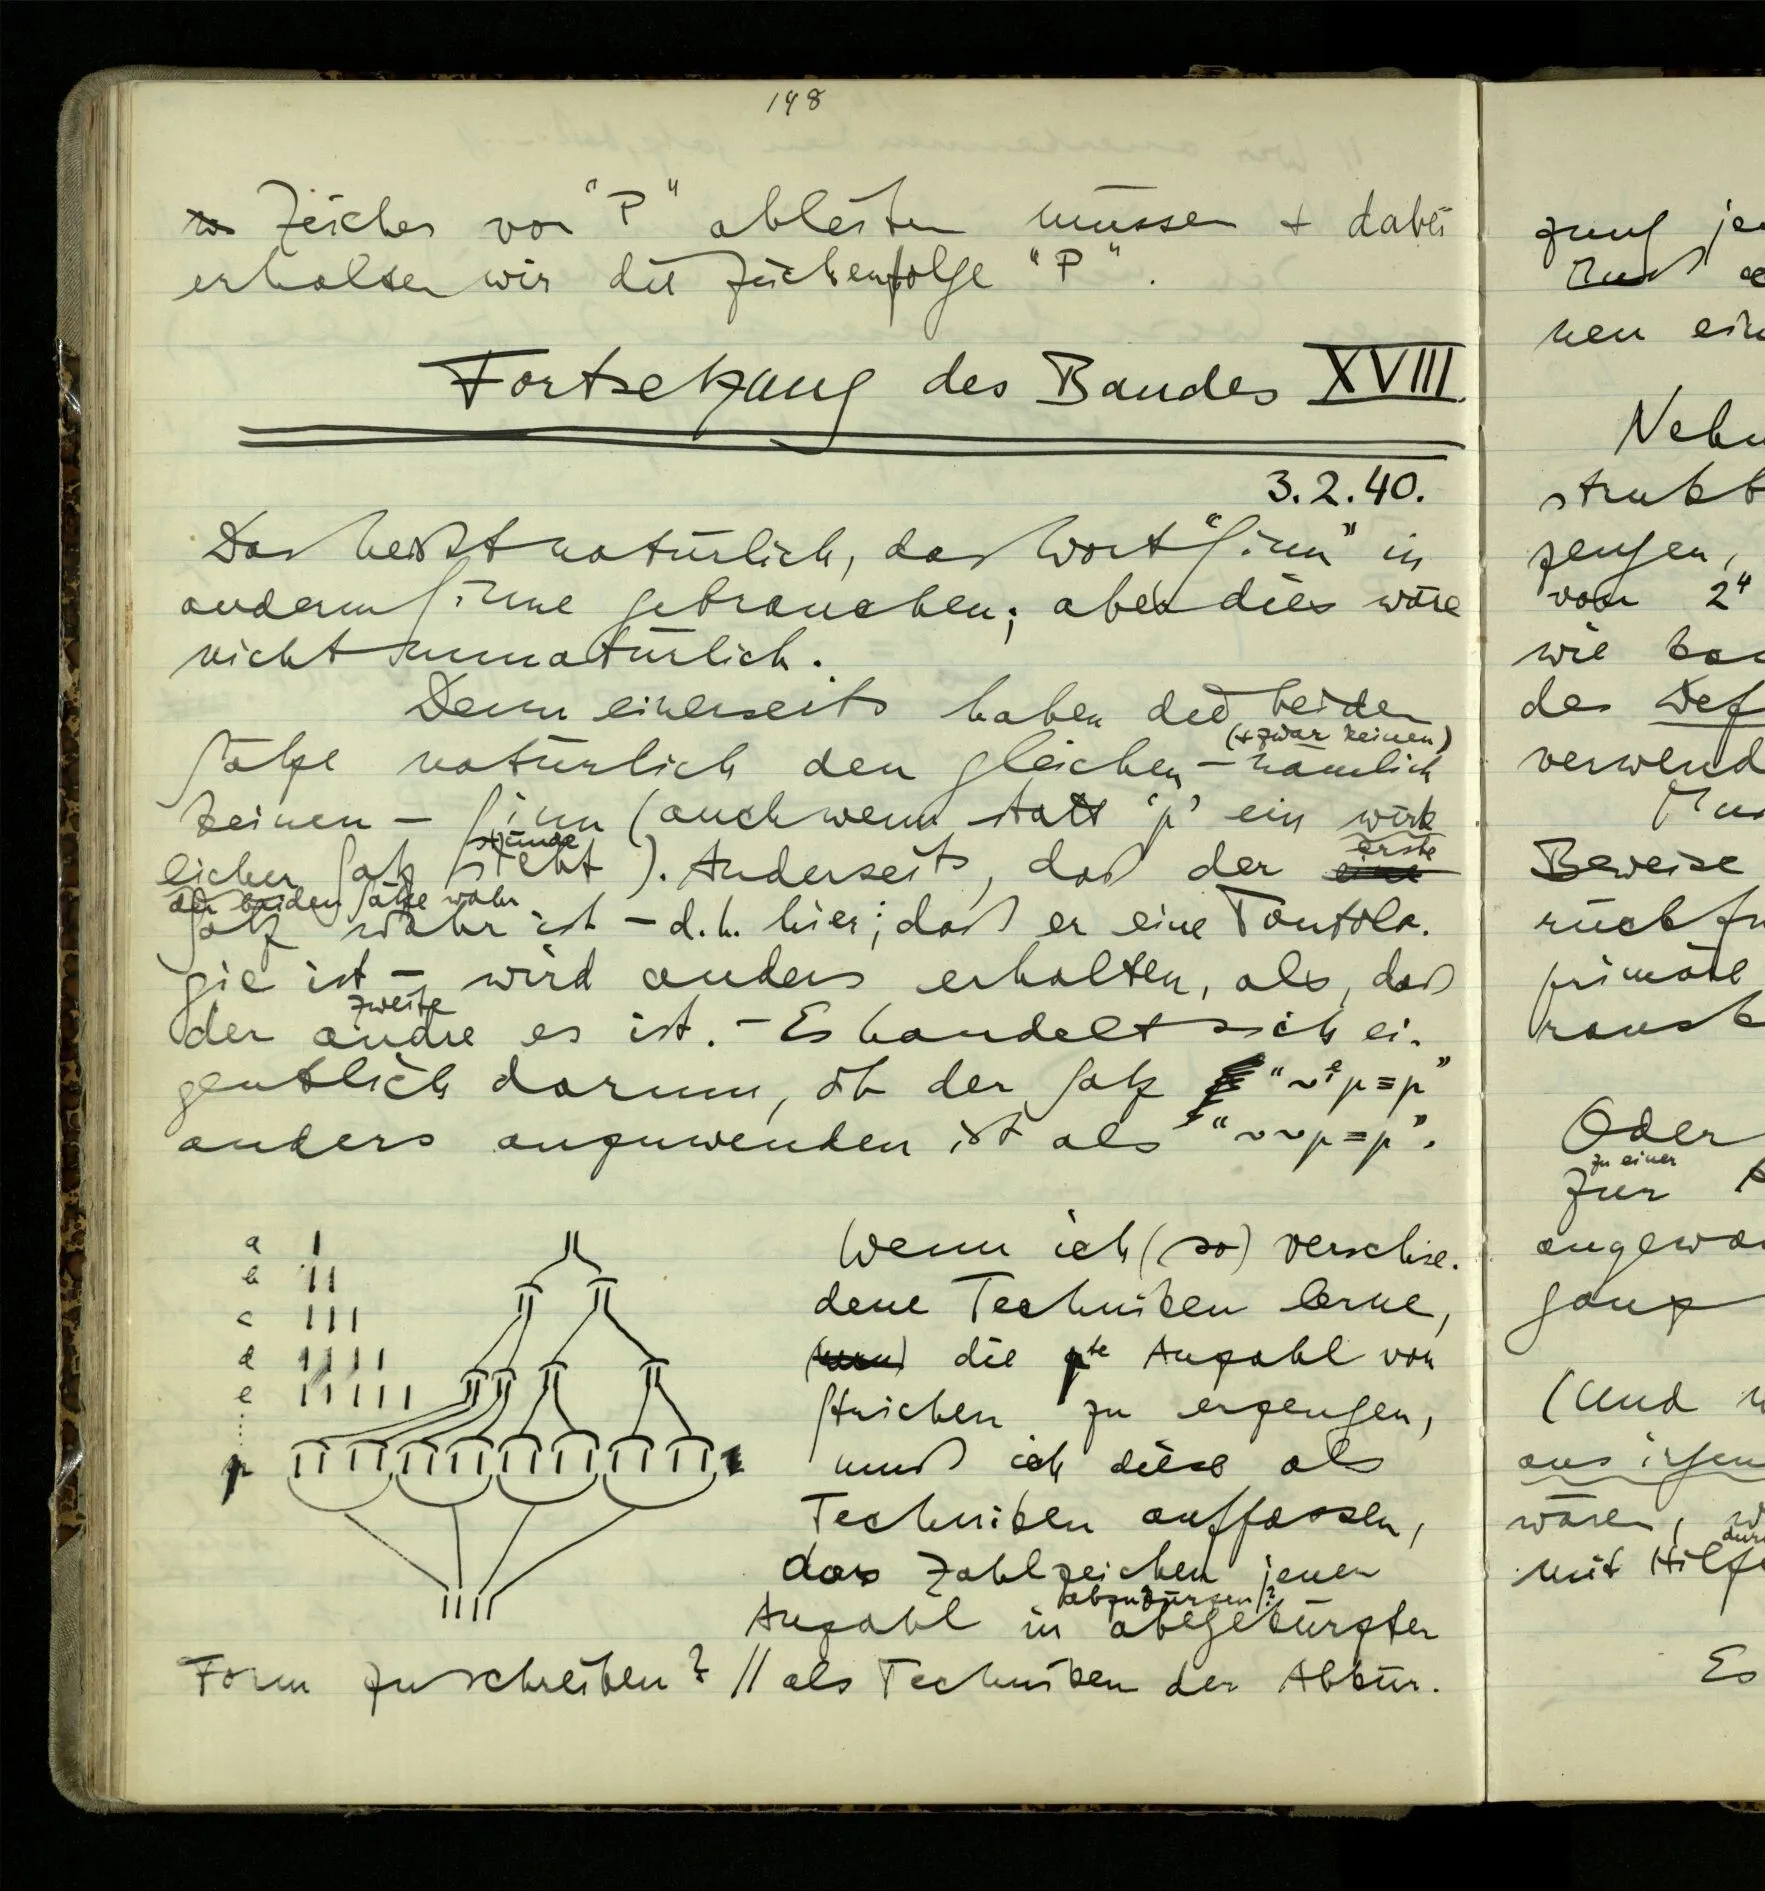 148
Zeichen von "P" ableiten müssen + dabei
erhalten wir die Zeichenfolge "P".
Fortsetzung des Bandes XVIII.
3.2.40.
Das heißt natürlich, das Wort "Sinn" in
anderm Sinne gebrauchen; aber dies wäre
nicht unnatürlich.
Denn einerseits haben die beiden
(+ zwar keinen)
Sätze natürlich den gleichen – nämlich
keinen – Sinn (auch wenn statt 'p' ein wirk
stünde erste
licher Satz steht). Anderseits, daß der eine
der beiden Sätze wahr
Satz wahr ist – d.h. hier; daß er eine Tautolo-
gie ist – wird anders erhalten, als, daß
zweite
der andre es ist. – Es handelt sich ei-
gentlich darum, ob der Satz "~ᵉp≡p"
anders anzuwenden ist als "~~p≡p".
a I
b II
c III
d IIII
e IIIII
Wenn ich (so) verschie-
dene Techniken lerne,
die pte Anzahl von
Strichen zu erzeugen,
muß ich diese als
Techniken auffassen,
das Zahlzeichen jener
abzukürzen/?
Anzahl in abgekürzter
Form zu schreiben? // als Techniken der Abkür-
p
zung
nen ein
Nehm
strukt
zeugen,
von 2"
wie kan
der Def
verwend
Beweise
rückfü
primäre
Oder
zu einer
zur
angewan
ganz
(Und
aus irgen
wären, w
mit Hilfe
Es